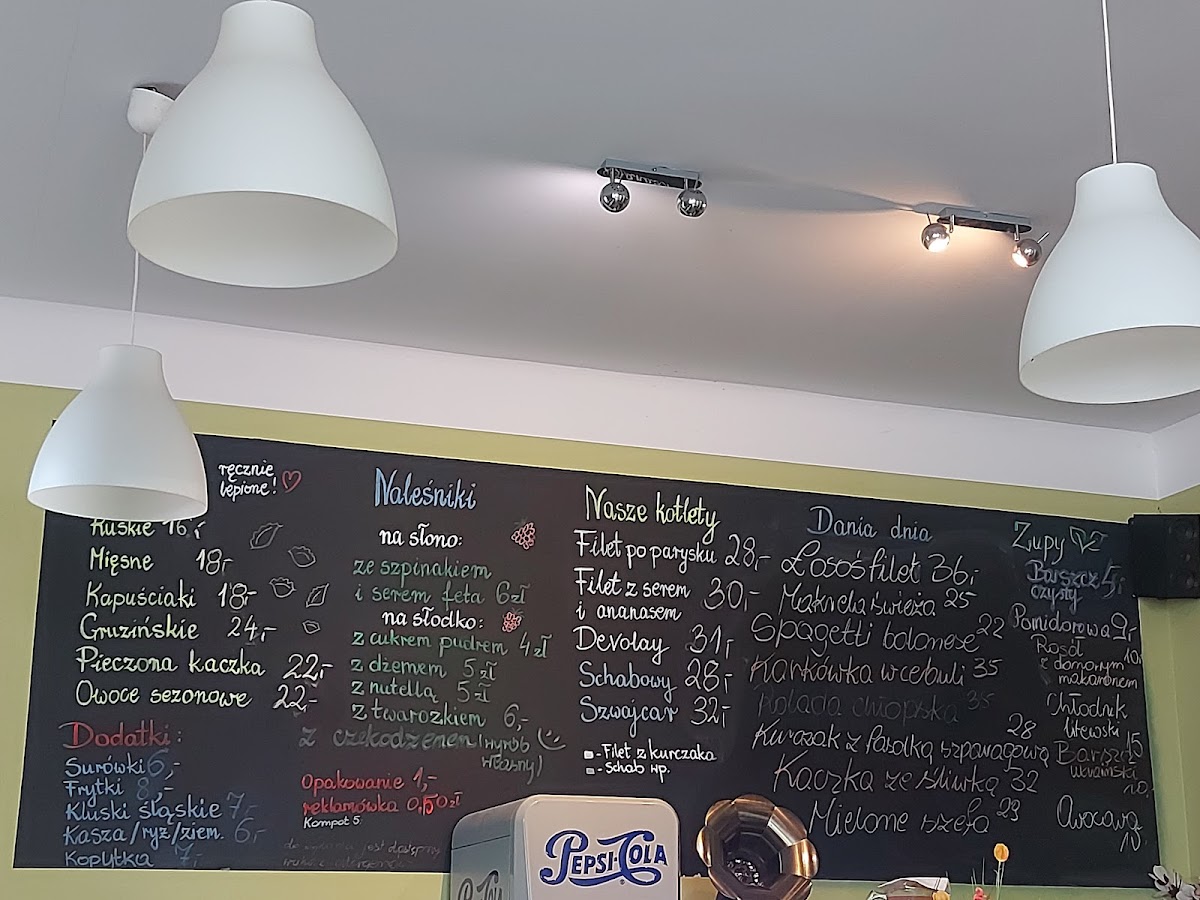 ręcznie
lepione!
Ruskie 16,-
Mięsne 18,-
Kapuściaki 18,-
Gruzińskie 24,-
Pieczona kaczka 22,-
Owoce sezonowe 22,-
Dodatki:
Surówki 6,-
Frytki 8,-
Kluski śląskie 7,-
Kasza/ryż/ziem. 6,-
Kopytka 7,-
Naleśniki
na słono:
ze szpinakiem
i serem feta 6zł
na słodko:
z cukrem pudrem 4zł
z dżemem 5zł
z nutellą 5zł
z twarożkiem 6,-
z czekodżemem (wyrób
własny)
Opakowanie 1,-
reklamówka 0,50zł
Kompot 5
Nasze kotlety
Filet po parysku 28,-
Filet z serem
i ananasem 30,-
Devolay 31,-
Schabowy 28,-
Szwajcar 32,-
- Filet z kurczaka
- Schab wp.
Dania dnia
Łosoś filet 36,-
Makrela świeża 25
Spagetti bolonese 22
Karkówka w cebuli 35
Rolada chłopska 35
Kurczak z fasolką szparagową 28
Kaczka ze śliwką 32
Mielone szefa 29
Zupy
Barszcz
czysty 5,-
Pomidorowa 9,-
Rosół 10,-
z domowym
makaronem
Chłodnik
litewski 15
Barszcz
ukraiński 10,-
Owocowa
10
PEPSI-COLA